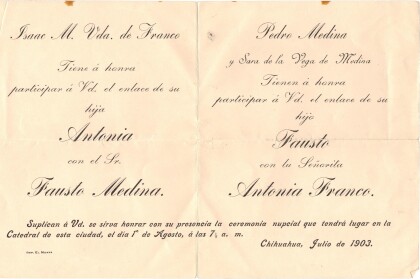 Isaac M. Vda. de Franco
Tiene á honra
participar á Vd. el enlace de su
hija
Antonia
con el Sr.
Fausto Medina.
Pedro Medina
y Sara de la Vega de Medina
Tienen á honra
participar á Vd. el enlace de su
hijo
Fausto
con la Señorita
Antonia Franco.
Suplican á Vd. se sirva honrar con su presencia la ceremonia nupcial que tendrá lugar en la
Catedral de esta ciudad, el día 1º de Agosto, á las 7, a. m.
Chihuahua, Julio de 1903.